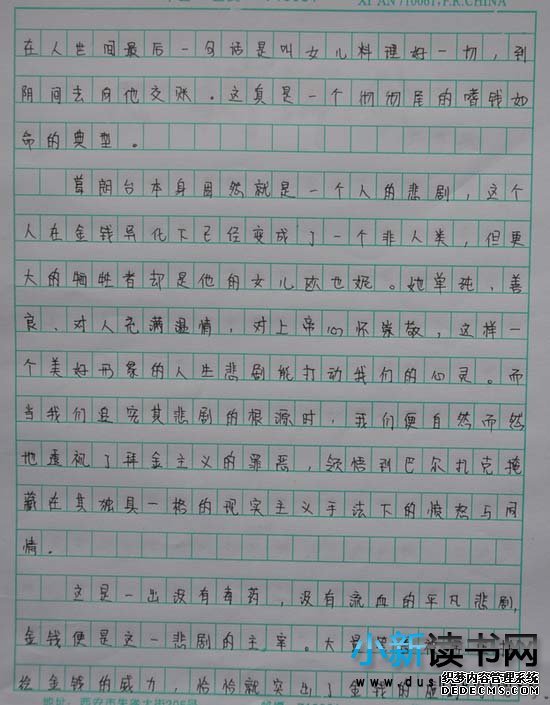 XI'AN 710061, P.R.CHINA
在人世间最后一句话是叫女儿料理好一切，到
阴间去向他交账。这真是一个彻彻尾的嗜钱如
命的典型。
葛朗台本身固然就是一个人的悲剧，这个
人在金钱异化下已经变成了一个非人类，但更
大的牺牲者却是他的女儿欧也妮。她单纯、善
良、对人充满温情，对上帝心怀崇敬，这样一
个美好形象的人生悲剧能打动我们的心灵。而
当我们追究其悲剧的根源时，我们便自然而然
地透视了拜金主义的罪恶，领悟到巴尔扎克掩
藏在其独具一格的现实主义手法下的愤怒与同
情。
这是一出没有毒药，没有流血的平凡悲剧，
金钱便是这一悲剧的主宰。大
小新读书网
给金钱的威力，恰恰就突出了金钱的
www.dus
织梦内容管理系统
DEDECMS.COM
地址：西安市朱雀大街